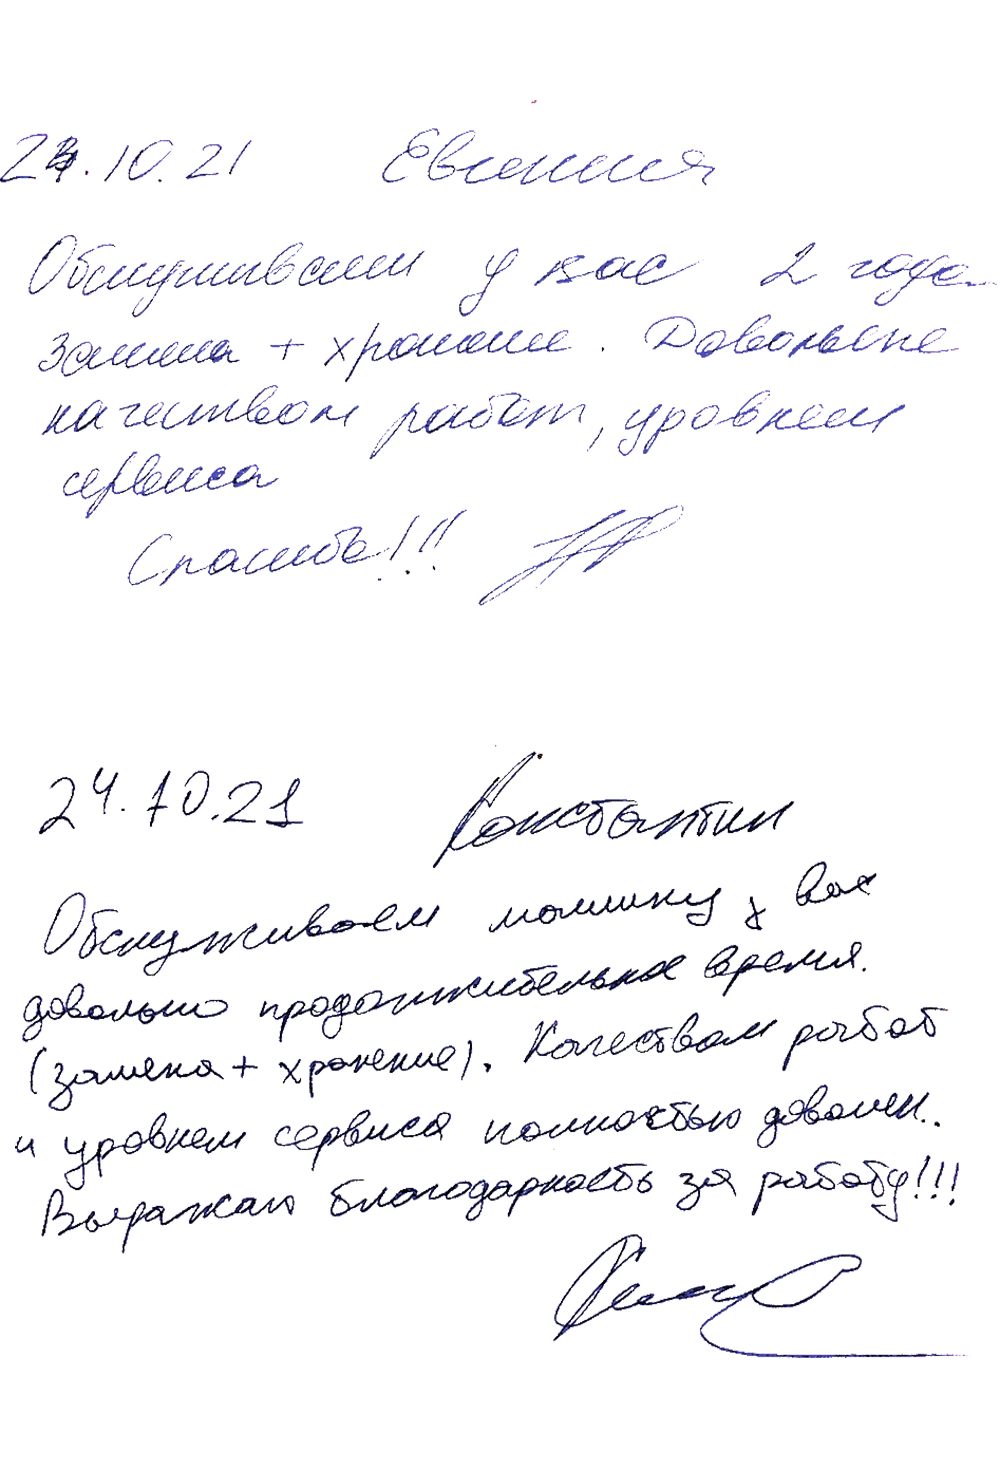 24.10.21 Евгения
Обслуживаем у вас 2 года
замена + хранение. Довольны
качеством работ, уровнем
сервиса
Спасибо!!!
24.10.21 Константин
Обслуживаем машину у вас
довольно продолжительное время.
(замена + хранение). Качеством работ
и уровнем сервиса полностью доволен.
Выражаю благодарность за работу!!!